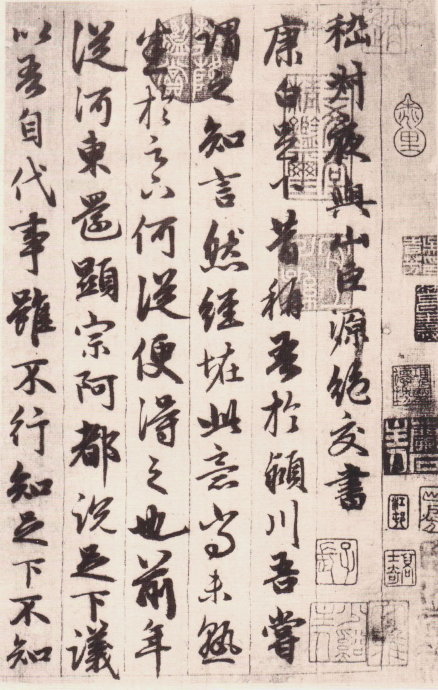 嵇叔夜與山巨源絕交書
康白足下昔稱吾於潁川吾嘗
謂之知言然經怪此意尚未熟
悉於足下何從便得之也前年
從河東還顯宗阿都說足下議
以吾自代事雖不行知足下不知